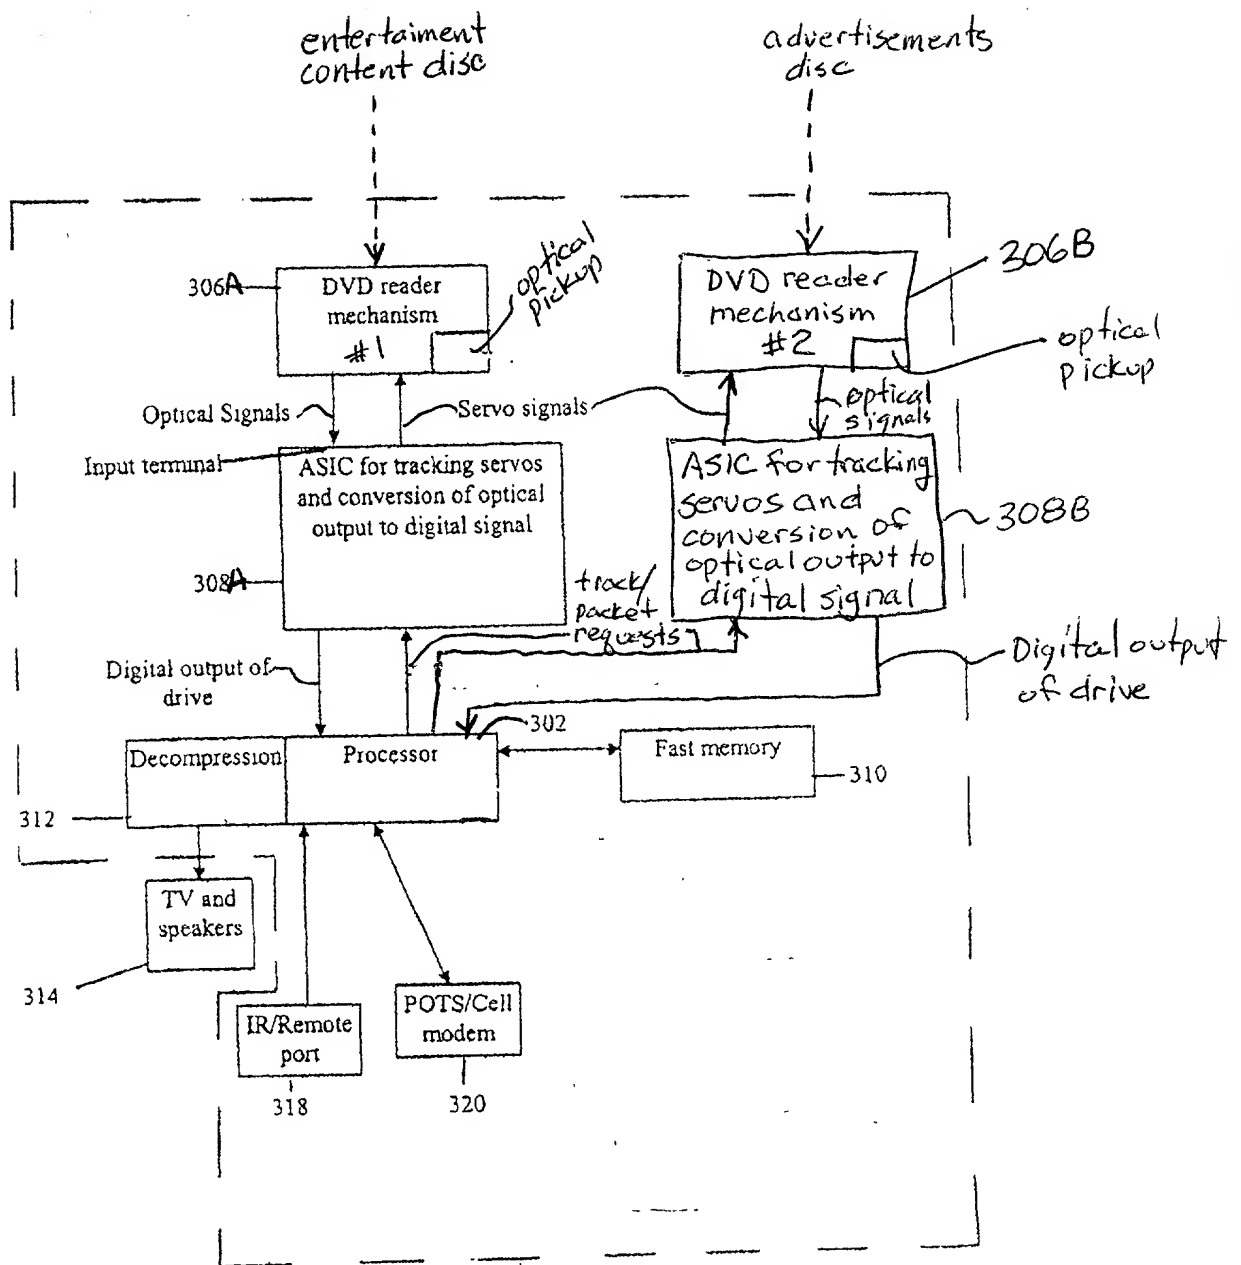 entertaiment
content disc
advertisements
disc
306A
DVD reader
mechanism
#1
optical
pickup
DVD reader
mechanism
#2
306B
optical
pickup
Optical Signals
Servo signals
optical
signals
Input terminal
ASIC for tracking servos
and conversion of optical
output to digital signal
308A
ASIC for tracking
servos and
conversion of
optical output to
digital signal
308B
track/
packet
requests
Digital output of
drive
Digital output
of drive
302
Decompression
Processor
Fast memory
310
312
TV and
speakers
314
IR/Remote
port
318
POTS/Cell
modem
320